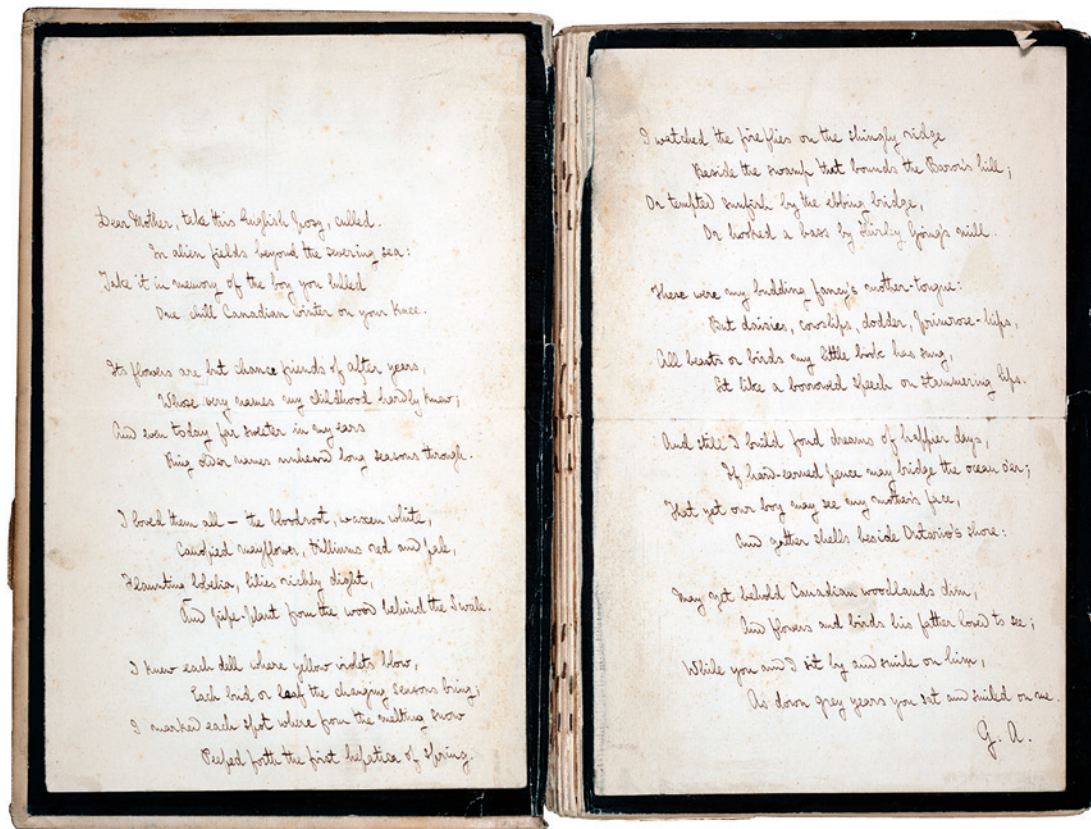 Dear Mother, take this English posy, culled
In alien fields beyond the severing sea:
Take it in memory of the boy you lulled
One chill Canadian winter on your knee.
Its flowers are but chance friends of after years,
Whose very names my childhood hardly knew;
And even today far sweeter in my ears
Ring older names unheard long seasons through.
I loved them all — the bloodroot, waxen white,
Canopied mayflower, trilliums red and pale,
Flaunting lobelia, lilies richly dight,
And pipe-plant from the wood behind the Swale.
I knew each dell where yellow violets blow,
Each bud or leaf the changing seasons bring;
I marked each spot where from the melting snow
Peeped forth the first hepatica of Spring.
I watched the fireflies on the shingly ridge
Beside the swamp that bounds the Baron's hill;
Or tempted sunfish by the ebbing bridge,
Or hooked a bass by Shirley Going's mill.
These were my budding fancy's mother-tongue:
But daisies, cowslips, dodder, primrose-hips,
All beasts or birds my little book has sung,
Sit like a borrowed speech on stammering lips.
And still I build fond dreams of happier days,
If hard-earned pence may bridge the ocean o'er;
That yet our boy may see my mother's face,
And gather shells beside Ontario's shore:
May yet behold Canadian woodlands dim,
And flowers and birds his father loved to see;
While you and I sit by and smile on him,
As down grey years you sat and smiled on me.
G. A.